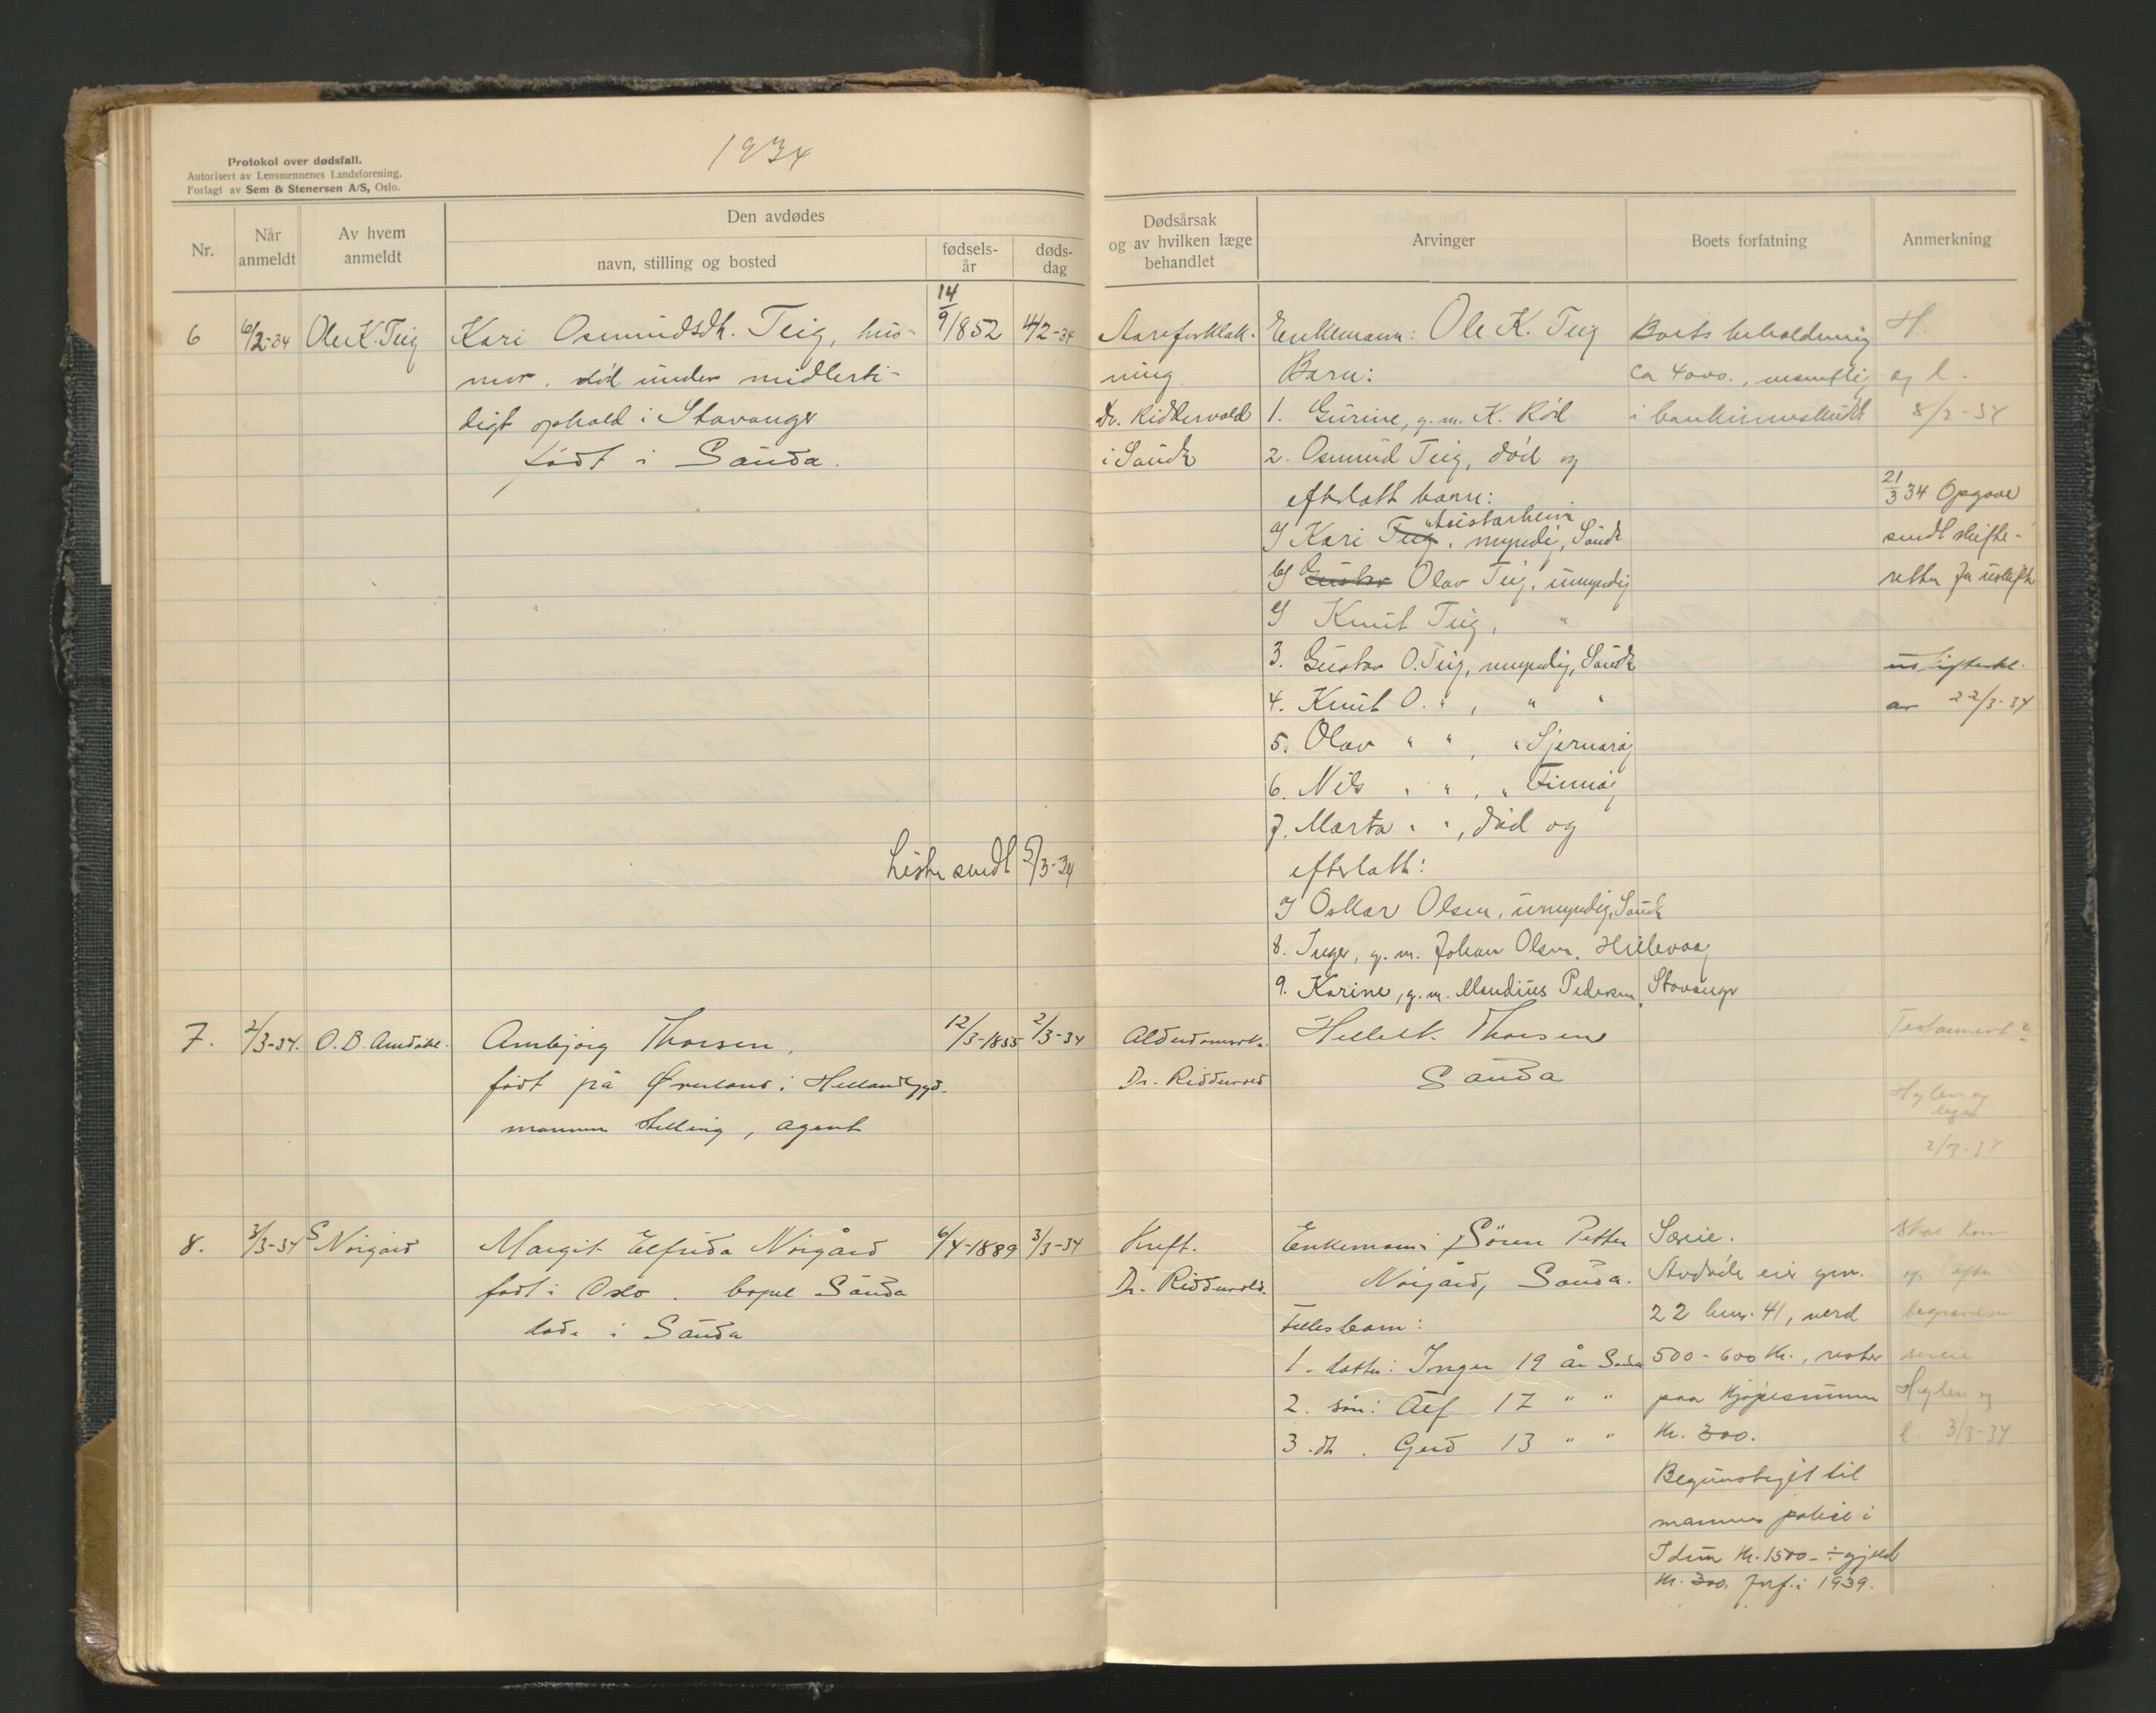 1934
Protokol over dødsfall.
Autorisert av Lensmennenes Landsforening.
Forlagt av Sem & Stenersen A/S, Oslo.
Nr.
Når anmeldt
Av hvem anmeldt
Den avdødes
navn, stilling og bosted
fødsels-år
døds-dag
Dødsårsak og av hvilken læge behandlet
Arvinger
Boets forfatning
Anmerkning
6 6/2-34 Ole K. Teig Kari Osmundsdtr. Teig, hus- 14/9 1852 4/2-34
mor. død under midlerti-
digt ophold i Stavanger
født i Sauda.
Liste sendt 5/3-34
Aareforkalk-
ning
Dr. Riddervold
i Sauda
Enkemann: Ole K. Teig
Barn:
1. Gurine, g.m. K. Rød
2. Osmund Teig, død og
efterlatt barn:
Austarheim
a) Kari Teig, myndig, Sauda
b) Gustav Olav Teig, umyndig
c) Knut Teig, "
3. Gustav O. Teig, myndig, Sauda
4. Knut O. " , " "
5. Olav " " , " Sjernarøy
6. Nils " " , " Finnøy
7. Marta " " , død og
efterlatt:
a) Oskar Olsen, umyndig, Sauda
8. Inger, g.m. Johan Olsen, Hillevaag
9. Karine, g.m. Mandius Pedersen, Stavanger
Boets beholdning
ca 4000., vesentlig
i bankinnskudd
H.
og l.
8/2-34
21/3 34 Opgave
sendt skifte-
retten for uskifte
av 22/3-34
7. 2/3-34. O. B. Amdahl. Anbjørg Thorsen, 12/3-1855 2/3-34
født på Øverland i Hellandsbygd.
mannens stilling, agent
Dr. Riddervold
Helleik Thorsen
Sauda
Testament?
2/3-34
8. 3/3-34 S Norgård Margit Elfrida Norgård 6/4-1889 3/3-34
født i Oslo. bopel Sauda
døde i Sauda
Kreft.
Dr. Riddervold.
Enkemann: Sören Petter
Norgård, Sauda.
Fellesbarn:
1. datter: Inger 19 år Sauda
2. sön: Alf 17 " "
3. dtr. Gerd 13 " "
Særeie.
Avdøde eier gnr.
22 bnr. 41, verd
500-600 kr., rester
paa kjøpesummen
kr. 300.
Begunstiget til
mannens police i
Idun kr. 1500 - ÷ gjeld
kr. 300. forf. i 1939.
Skal komme
op efter
begravelsen
særeie
Hylen og
l. 3/3-34